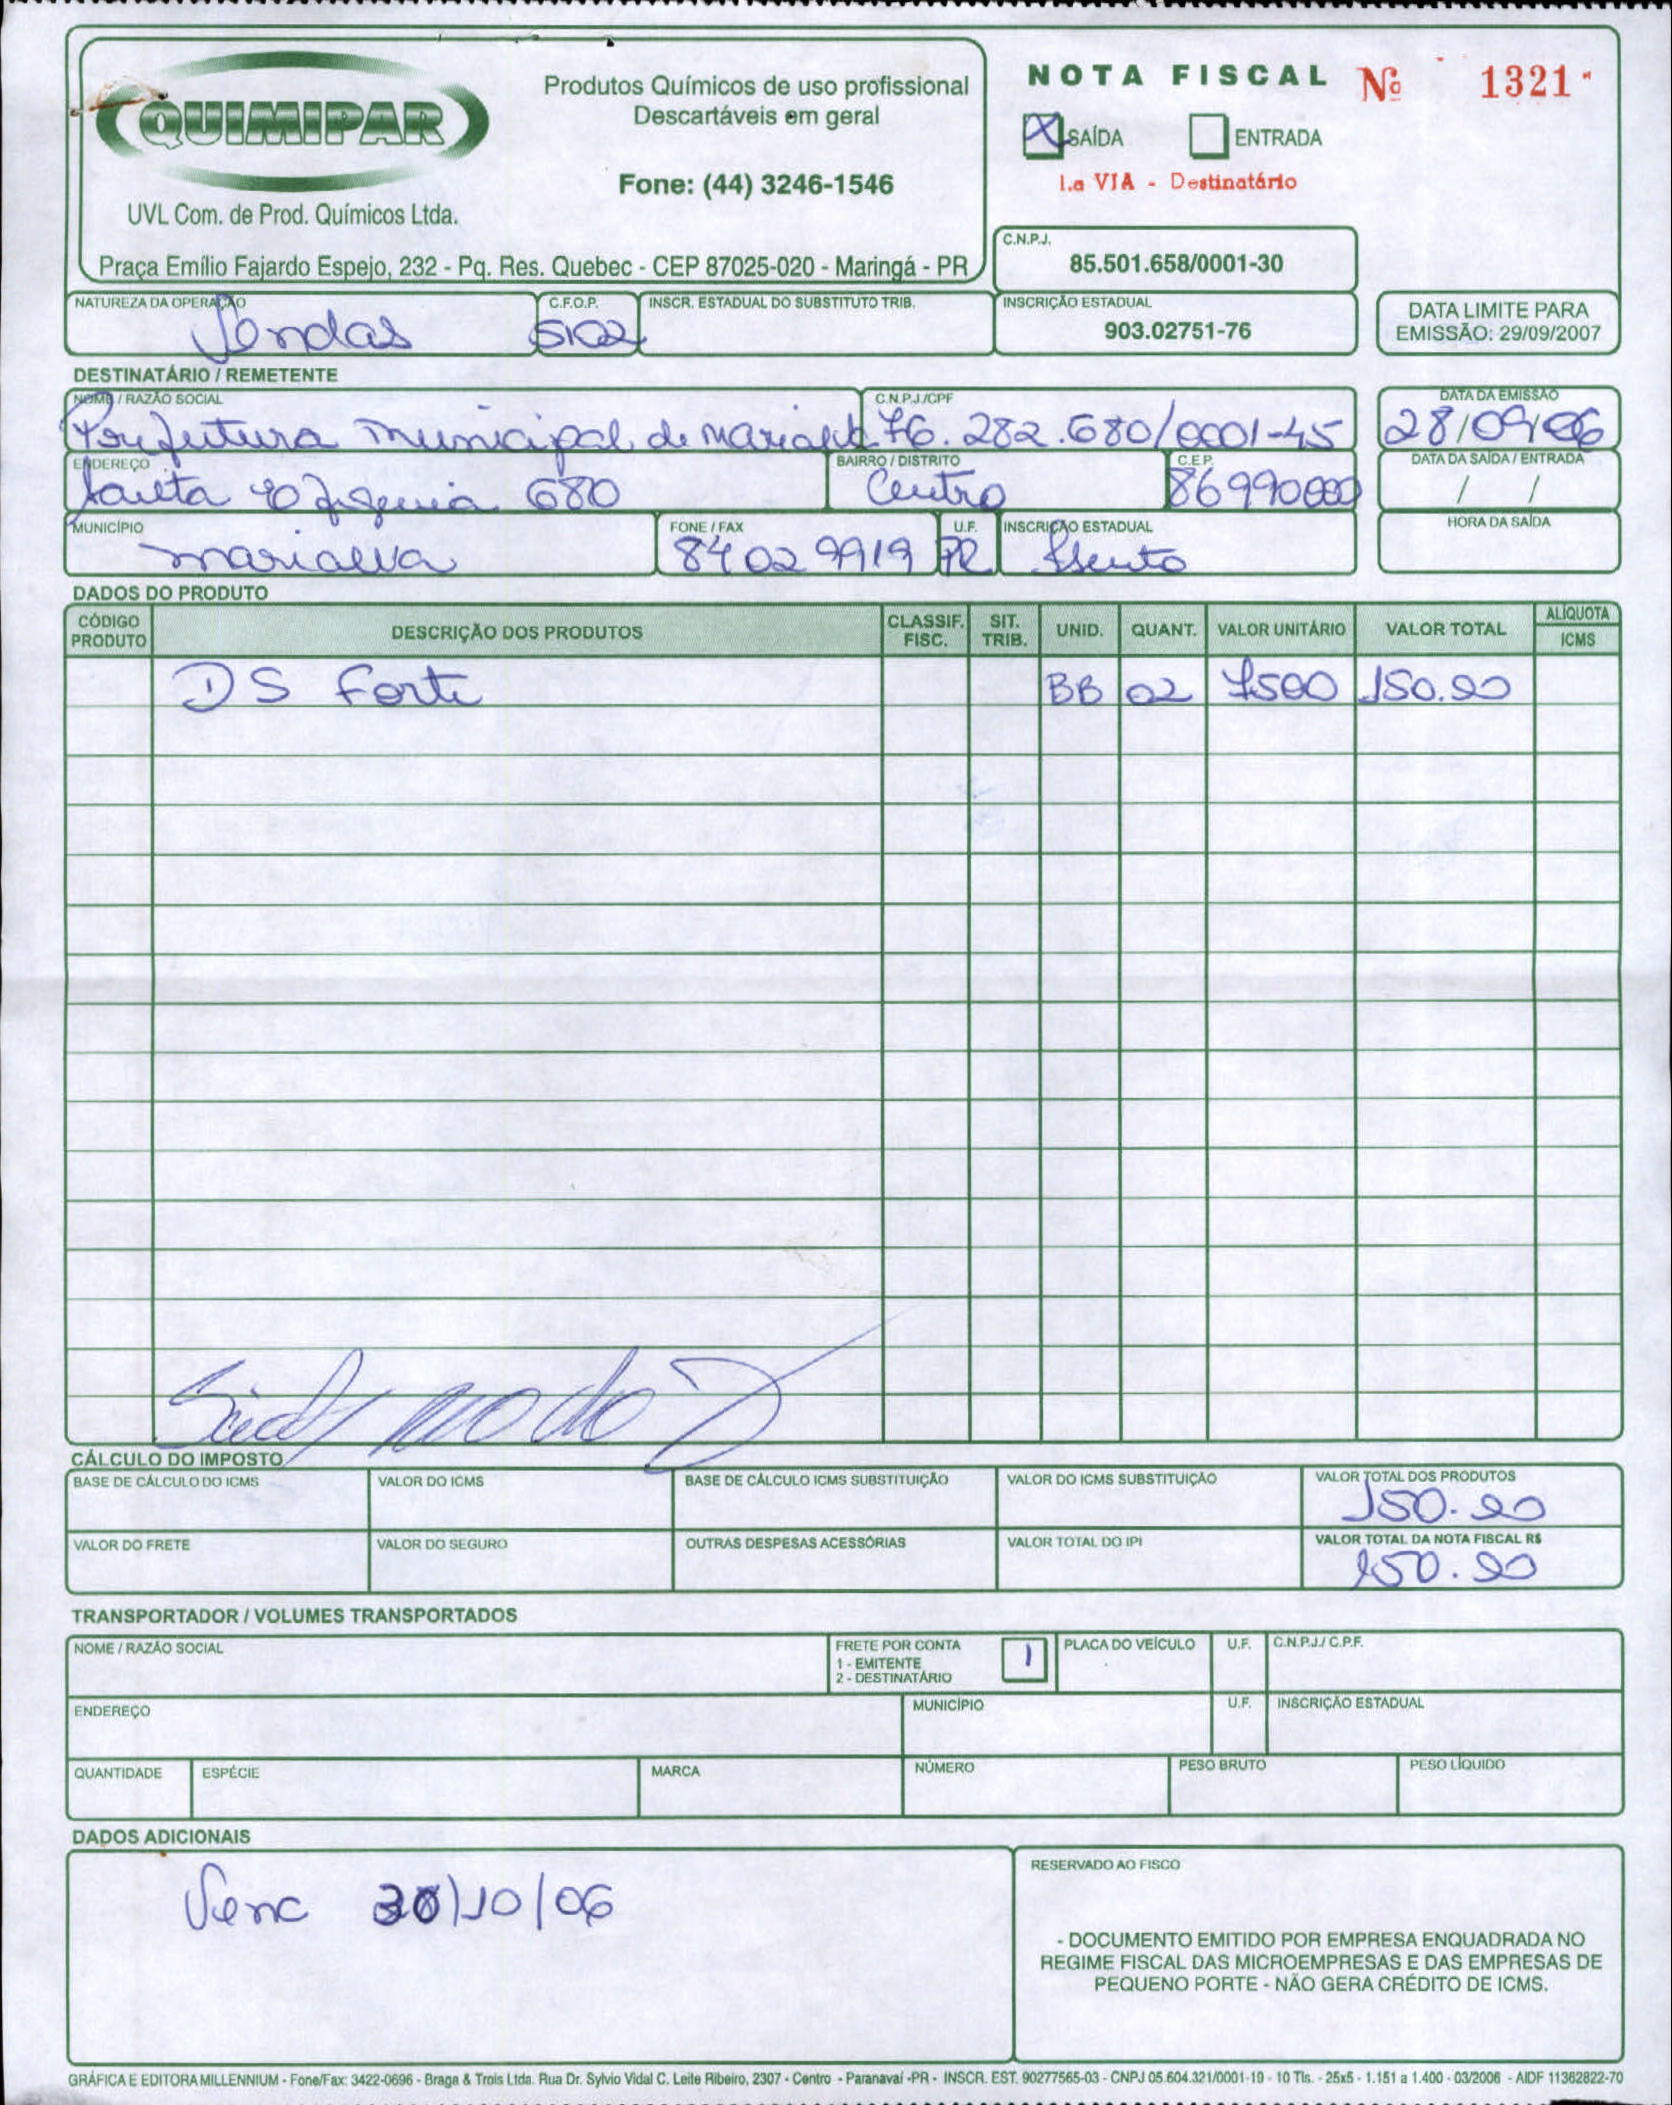 QUIMIPAR
UVL Com. de Prod. Químicos Ltda.
Produtos Químicos de uso profissional
Descartáveis em geral
Fone: (44) 3246-1546
Praça Emílio Fajardo Espejo, 232 - Pq. Res. Quebec - CEP 87025-020 - Maringá - PR
NOTA FISCAL Nº 1321
X SAÍDA ENTRADA
1.a VIA - Destinatário
C.N.P.J.
85.501.658/0001-30
NATUREZA DA OPERAÇÃO
Vendas
C.F.O.P.
5102
INSCR. ESTADUAL DO SUBSTITUTO TRIB.
INSCRIÇÃO ESTADUAL
903.02751-76
DATA LIMITE PARA
EMISSÃO: 29/09/2007
DESTINATÁRIO / REMETENTE
NOME / RAZÃO SOCIAL
Prefeitura municipal de marialva
C.N.P.J./CPF
76.282.680/0001-45
DATA DA EMISSÃO
28/09/06
ENDEREÇO
Santa Efigenia 680
BAIRRO / DISTRITO
Centro
C.E.P.
86990000
DATA DA SAÍDA / ENTRADA
/ /
MUNICÍPIO
marialva
FONE / FAX
84029919
U.F.
PR
INSCRIÇÃO ESTADUAL
Isento
HORA DA SAÍDA
DADOS DO PRODUTO
CÓDIGO PRODUTO DESCRIÇÃO DOS PRODUTOS CLASSIF. FISC. SIT. TRIB. UNID. QUANT. VALOR UNITÁRIO VALOR TOTAL ALÍQUOTA ICMS
DS Forte BB 02 7500 150.00
CÁLCULO DO IMPOSTO
BASE DE CÁLCULO DO ICMS
VALOR DO ICMS
BASE DE CÁLCULO ICMS SUBSTITUIÇÃO
VALOR DO ICMS SUBSTITUIÇÃO
VALOR TOTAL DOS PRODUTOS
150.00
VALOR DO FRETE
VALOR DO SEGURO
OUTRAS DESPESAS ACESSÓRIAS
VALOR TOTAL DO IPI
VALOR TOTAL DA NOTA FISCAL R$
150.00
TRANSPORTADOR / VOLUMES TRANSPORTADOS
NOME / RAZÃO SOCIAL
FRETE POR CONTA
1 - EMITENTE
2 - DESTINATÁRIO
1
PLACA DO VEÍCULO
U.F.
C.N.P.J./ C.P.F.
ENDEREÇO
MUNICÍPIO
U.F.
INSCRIÇÃO ESTADUAL
QUANTIDADE
ESPÉCIE
MARCA
NÚMERO
PESO BRUTO
PESO LÍQUIDO
DADOS ADICIONAIS
Venc 30/10/06
RESERVADO AO FISCO
- DOCUMENTO EMITIDO POR EMPRESA ENQUADRADA NO
REGIME FISCAL DAS MICROEMPRESAS E DAS EMPRESAS DE
PEQUENO PORTE - NÃO GERA CRÉDITO DE ICMS.
GRÁFICA E EDITORA MILLENNIUM - Fone/Fax: 3422-0696 - Braga & Trois Ltda. Rua Dr. Sylvio Vidal C. Leite Ribeiro, 2307 - Centro - Paranavaí -PR - INSCR. EST. 90277565-03 - CNPJ 05.604.321/0001-19 - 10 Tls. - 25x5 - 1.151 a 1.400 - 03/2006 - AIDF 11362822-70